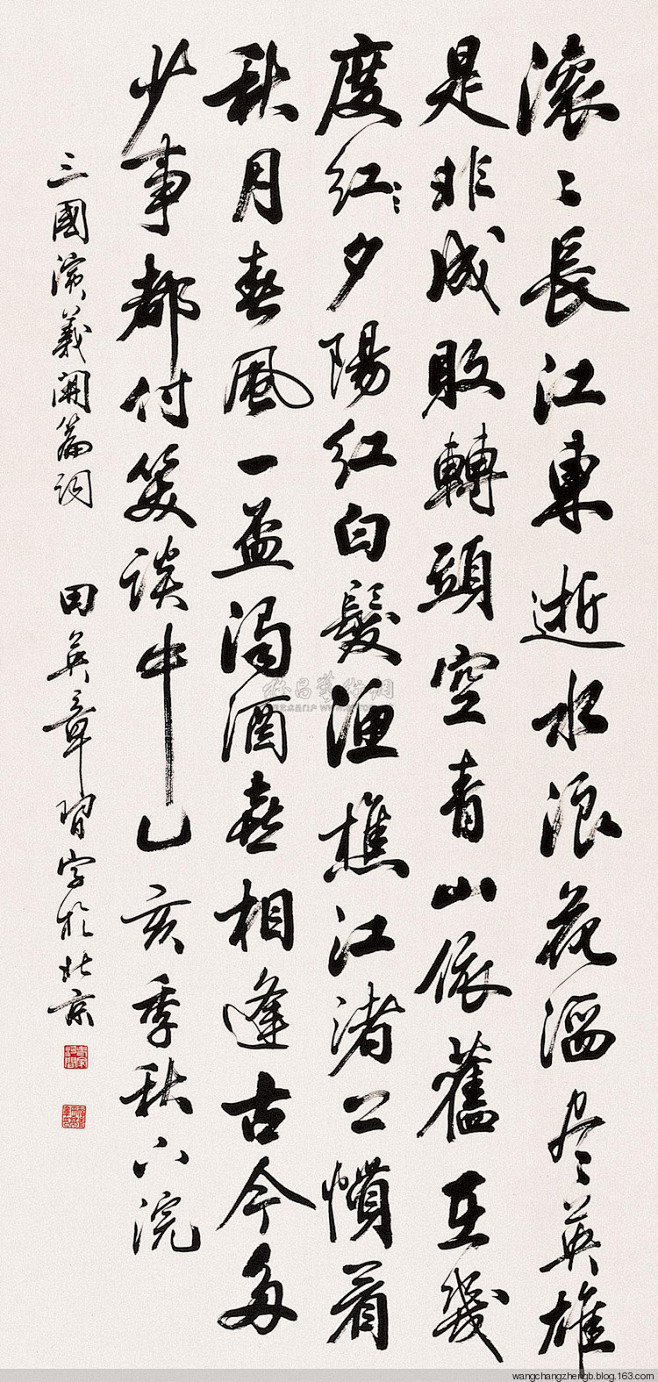 滚〻長江東逝水浪花滔尽英雄
是非成敗轉頭空青山依舊在幾
度红〻夕陽红白髮渔樵江渚上慣看
秋月春風一壺濁酒喜相逢古今多
少事都付笑談中乙亥季秋下浣
三國演義開篇詞 田英章習字於北京
wangchangzhengb.blog.163.com